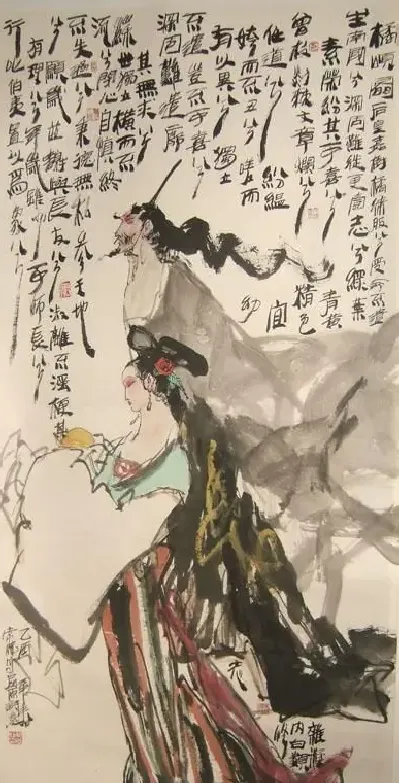 橘頌 后皇嘉樹橘徠服兮受命不遷
生南國兮深固難徙更壹志兮綠葉
素榮紛其可喜兮 青黄
曾枝剡 文章爛兮 精色
任道兮 紛緼 宜
姱而不丑兮 嗟而 幼
有以異兮 獨立
不遷豈不可喜兮
深固難徙廓
其無求兮
蘇世獨立橫而不
流兮閉心自慎終
不失過兮秉德無私參天地
兮願歲並謝與長友兮淑離不淫梗其
有理兮年歲雖少可師長兮
行比伯夷置以爲像兮
雜糅
内白類
修
乙酉